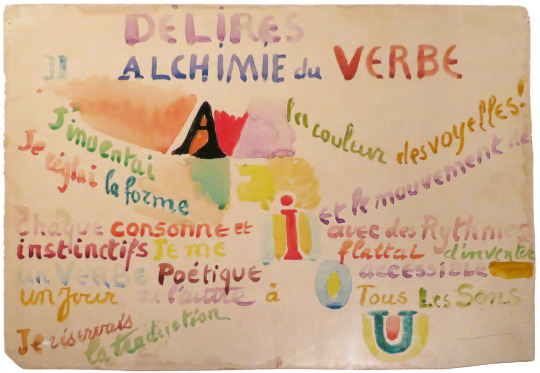 DELIRES
II ALCHIMIE du VERBE
J'inventai A la couleur des voyelles!
Je réglai la forme et le mouvement de
chaque consonne et i avec des Rythmes
instinctifs Je me flattai d'inventer
un VERBE Poétique accessible
un Jour ou l'autre à O Tous Les Sens
Je réservais la traduction U